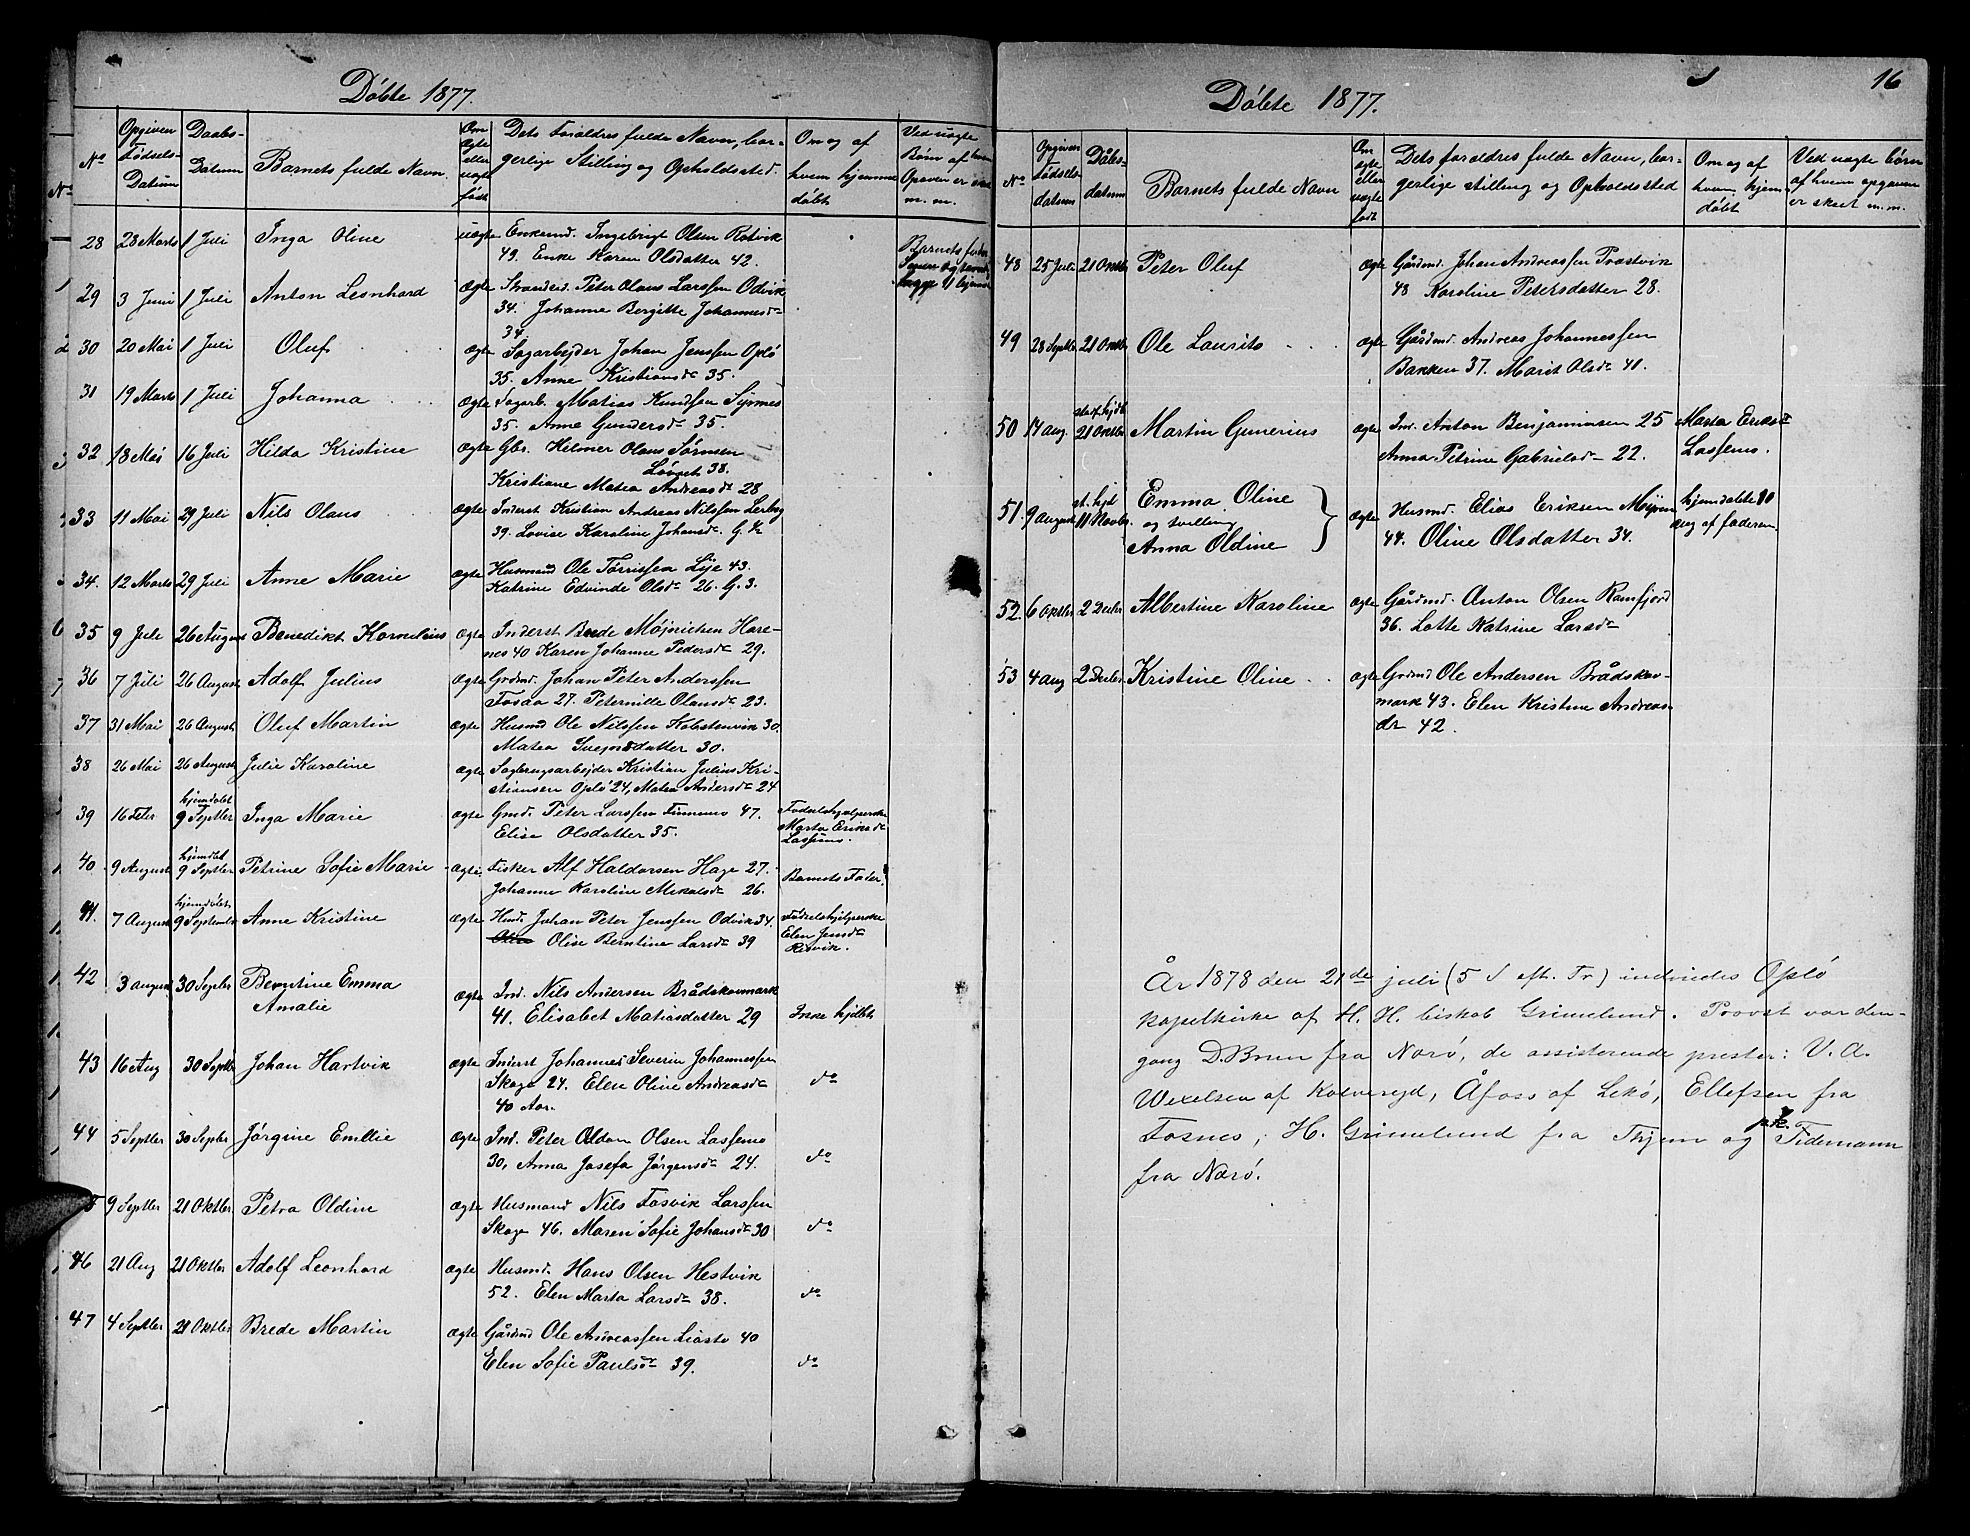 Döbte 1877.
No
Opgiven Födsels-Datum
Daabs-Datum
Barnets fulde Navn.
Om ægte eller uægte født
Dets Foraldres fulde Navn, bor-
gerlige Stilling og Opholdsted.
Om og af
hvem hjemme
döbt
Ved uægte
Börn af hvem
Opgaven er skeet
m. m.
28 28 Marts 1 Juli Inga Oline uægte Enkemd. Ingebrigt Olsen Rotvik
49. Enke Karen Olsdatter 42.
29 3 Juni 1 Juli Anton Leonhard ægte Strandsid. Peter Olaus Larssen Odvik
34. Johanne Bergitte Johannesd
34.
30 20 Mai 1 Juli Oluf ægte Sagarbejder Johan Jenssen Oplö
35. Anne Kristiansd 35.
31 19 Marts 1 Juli Johanna ægte Sagarb. Matias Knudsen
35. Anne Gundersd 35.
32 18 Mai 16 Juli Hilda Kristine ægte Gbr. Helmer Olaus Sörnsen
38.
Kristiane Matea Andreasd 28
33 11 Mai 29 Juli Nils Olaus ægte Inderst Kristian Andreas Nilssen
39. Lovise Karoline Johansd.
34. 12 Marts 29 Juli Anne Marie ægte Husmand Ole Tørrissen Lije 43.
Katrine Edvinde Olsd 26. G. 3.
35 9 Juli 26 August Benedikt Kornelius ægte Inderst Brede Möjnichen Hare-
nes 40 Karen Johanne Pedersd 29.
36 7 Juli 26 August Adolf Julius ægte Grdmd. Johan Peter Anderssen
Fosaa 27. Peternille Olausd 23.
37 31 Mai 26 August Oluf Martin ægte Husmd Ole Nilssen Holstenvik 30.
Matea Svensdatter 30.
38 26 Mai 26 August Julie Karoline ægte Sagbrugsarbejder Kristian Julius Kri-
stiansen Oplö 24, Matea Andersd 24
39 16 Feber hjemdøbt 9 Septber Inga Marie ægte Gmd. Peter Larssen Finnemo 47.
Elise Olsdatter 35.
Födselshjælperske
Marta Eriksd
Lassemo.
40 9 August hjemdöbt 9 Septber Petrine Sofie Marie ægte Fisker Alf Haldorsen Hage 27.
Johanne Karoline Mikalsd 26.
Barnets Fader
41. 7 August hjemdöbt 9 September Anne Kristine ægte Husmd. Johan Peter Jenssen Odvik 34.
Olise Berntine Larsd 39
Födselshjelperske
Elen Jensd
Risvik.
42 3 august 30 Septbr Berntine Emma
Amalie
ægte Ind. Nils Andersen Brådskovmark
41. Elisabet Matiasdatter 29
Ikke hjdbt
43 16 Aug 30 Septbr Johan Hartvik ægte Inderst Johannes Severin Johannessen
Skage 24. Elen Oline Andreasd
40 Aar.
do
44 5 Septber 30 Septbr Jörgine Emilie ægte Ind. Peter Oldan Olsen Lassemo
30, Anna Josefa Jörgensd 24.
do
9 Septber 21 Oktber Petra Oldine ægte Husmand Nils Fosvik Larssen
Skage 46. Maren Sofie Johansd 30
do
46 21 Aug 21 Oktber Adolf Leonhard ægte Husmd. Hans Olsen Hestvik
52. Elen Marta Larsd 38.
do
47 4 Septber 21 Oktber Brede Martin ægte Gårdmd Ole Andreassen Liasto 40
Elen Sofie Paulsd 39.
do
Döbte 1877.
16
No
Opgiven födsels-datum
Dåbs-datum
Barnets fulde Navn
Om ægte eller uægte født
Dets foraldres fulde Navn, bor-
gerlige stilling og Opholdssted
Om og af
hvem hjem-
döbt
Ved uægte börn
af hvem opgaven
er skeet m. m.
48 25 Juli 21 Oktbr Peter Oluf ægte Gårdmd. Johan Andreassen Prastvik
48 Karoline Petersdatter 28.
49 28 Septbr 21 Oktbr Ole Laurits ægte Gårdmd. Andreas Johannessen
Bakken 37. Marit Olsd 41.
50 17 aug. stadf. hjdb. 21 Oktbr Martin Gunerius ægte Ind. Anton Benjaminsen 25
Anna Petrine Gabrielsd 22.
Marta Eriksd
Lassemo.
51. 9 August st. hjd 11 Novbr. Emma Oline
og tvilling
Anna Oldine
ægte Husmd. Elias Eriksen
44. Oline Olsdatter 34.
hjemdøbte 10
aug af faderen
52. 6 Oktbr 2 Decbr Albertine Karoline ægte Gårdmd. Anton Olsen Ramfjord
36. Lotte Katrine Larsd
53 4 aug 2 Decbr Kristine Oline ægte Grdmd Ole Andersen Brådskov-
mark 43. Elen Kristine Andreas
dr 42.
År 1878 den 21de juli (5 S eft. Tr) indviedes Oplö
kapelkirke af H. H. biskob Grimelund. Provst var den-
gang D. Bruun fra Narö, de assisterende prester: V. A.
Wexelsen af Kolvereid, Åfoss af Lekö, Ellefsen fra
Fosnes, H. Grimelund fra og p. k. Tidemann
fra Narö.